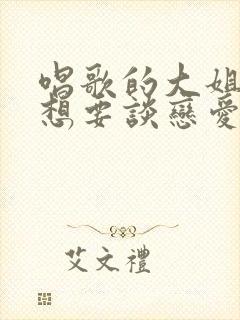 唱歌的大姐
想要談戀愛
艾文禮